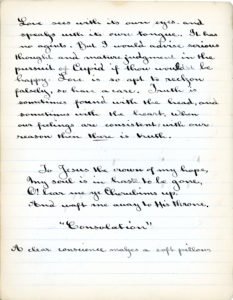 Love sees with its own eyes, and
speaks with its own tongue. It has
no agents. But I would advise serious
thought and mature judgment in the
pursuit of Cupid if thou would'st be
happy. Love is so apt to reckon
falsely, so have a care. Truth is
sometimes found with the head, and
sometimes with the heart, when
our feelings are consistent with our
reason then there is truth.
To Jesus the crown of my hope,
My soul is in haste to be gone,
O! bear me ye Cherubims up
And waft me away to His throne,
"Consolation"
A clear conscience makes a soft pillow